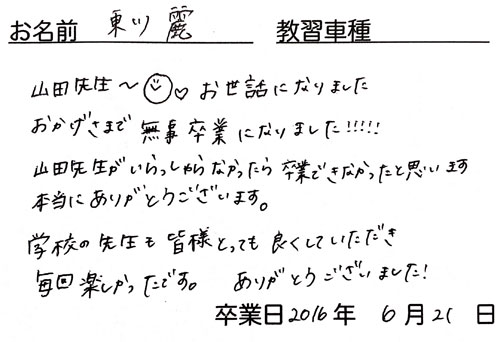 お名前 東川 麗 教習車種
山田先生～☺♡ お世話になりました
おかげさまで 無事卒業になりました!!!!!
山田先生がいらっしゃらなかったら 卒業できなかったと思います
本当にありがとうございます。
学校の先生も 皆様とっても 良くしていただき
毎回楽しかったです。 ありがとうございました!
卒業日2016年 6月21日